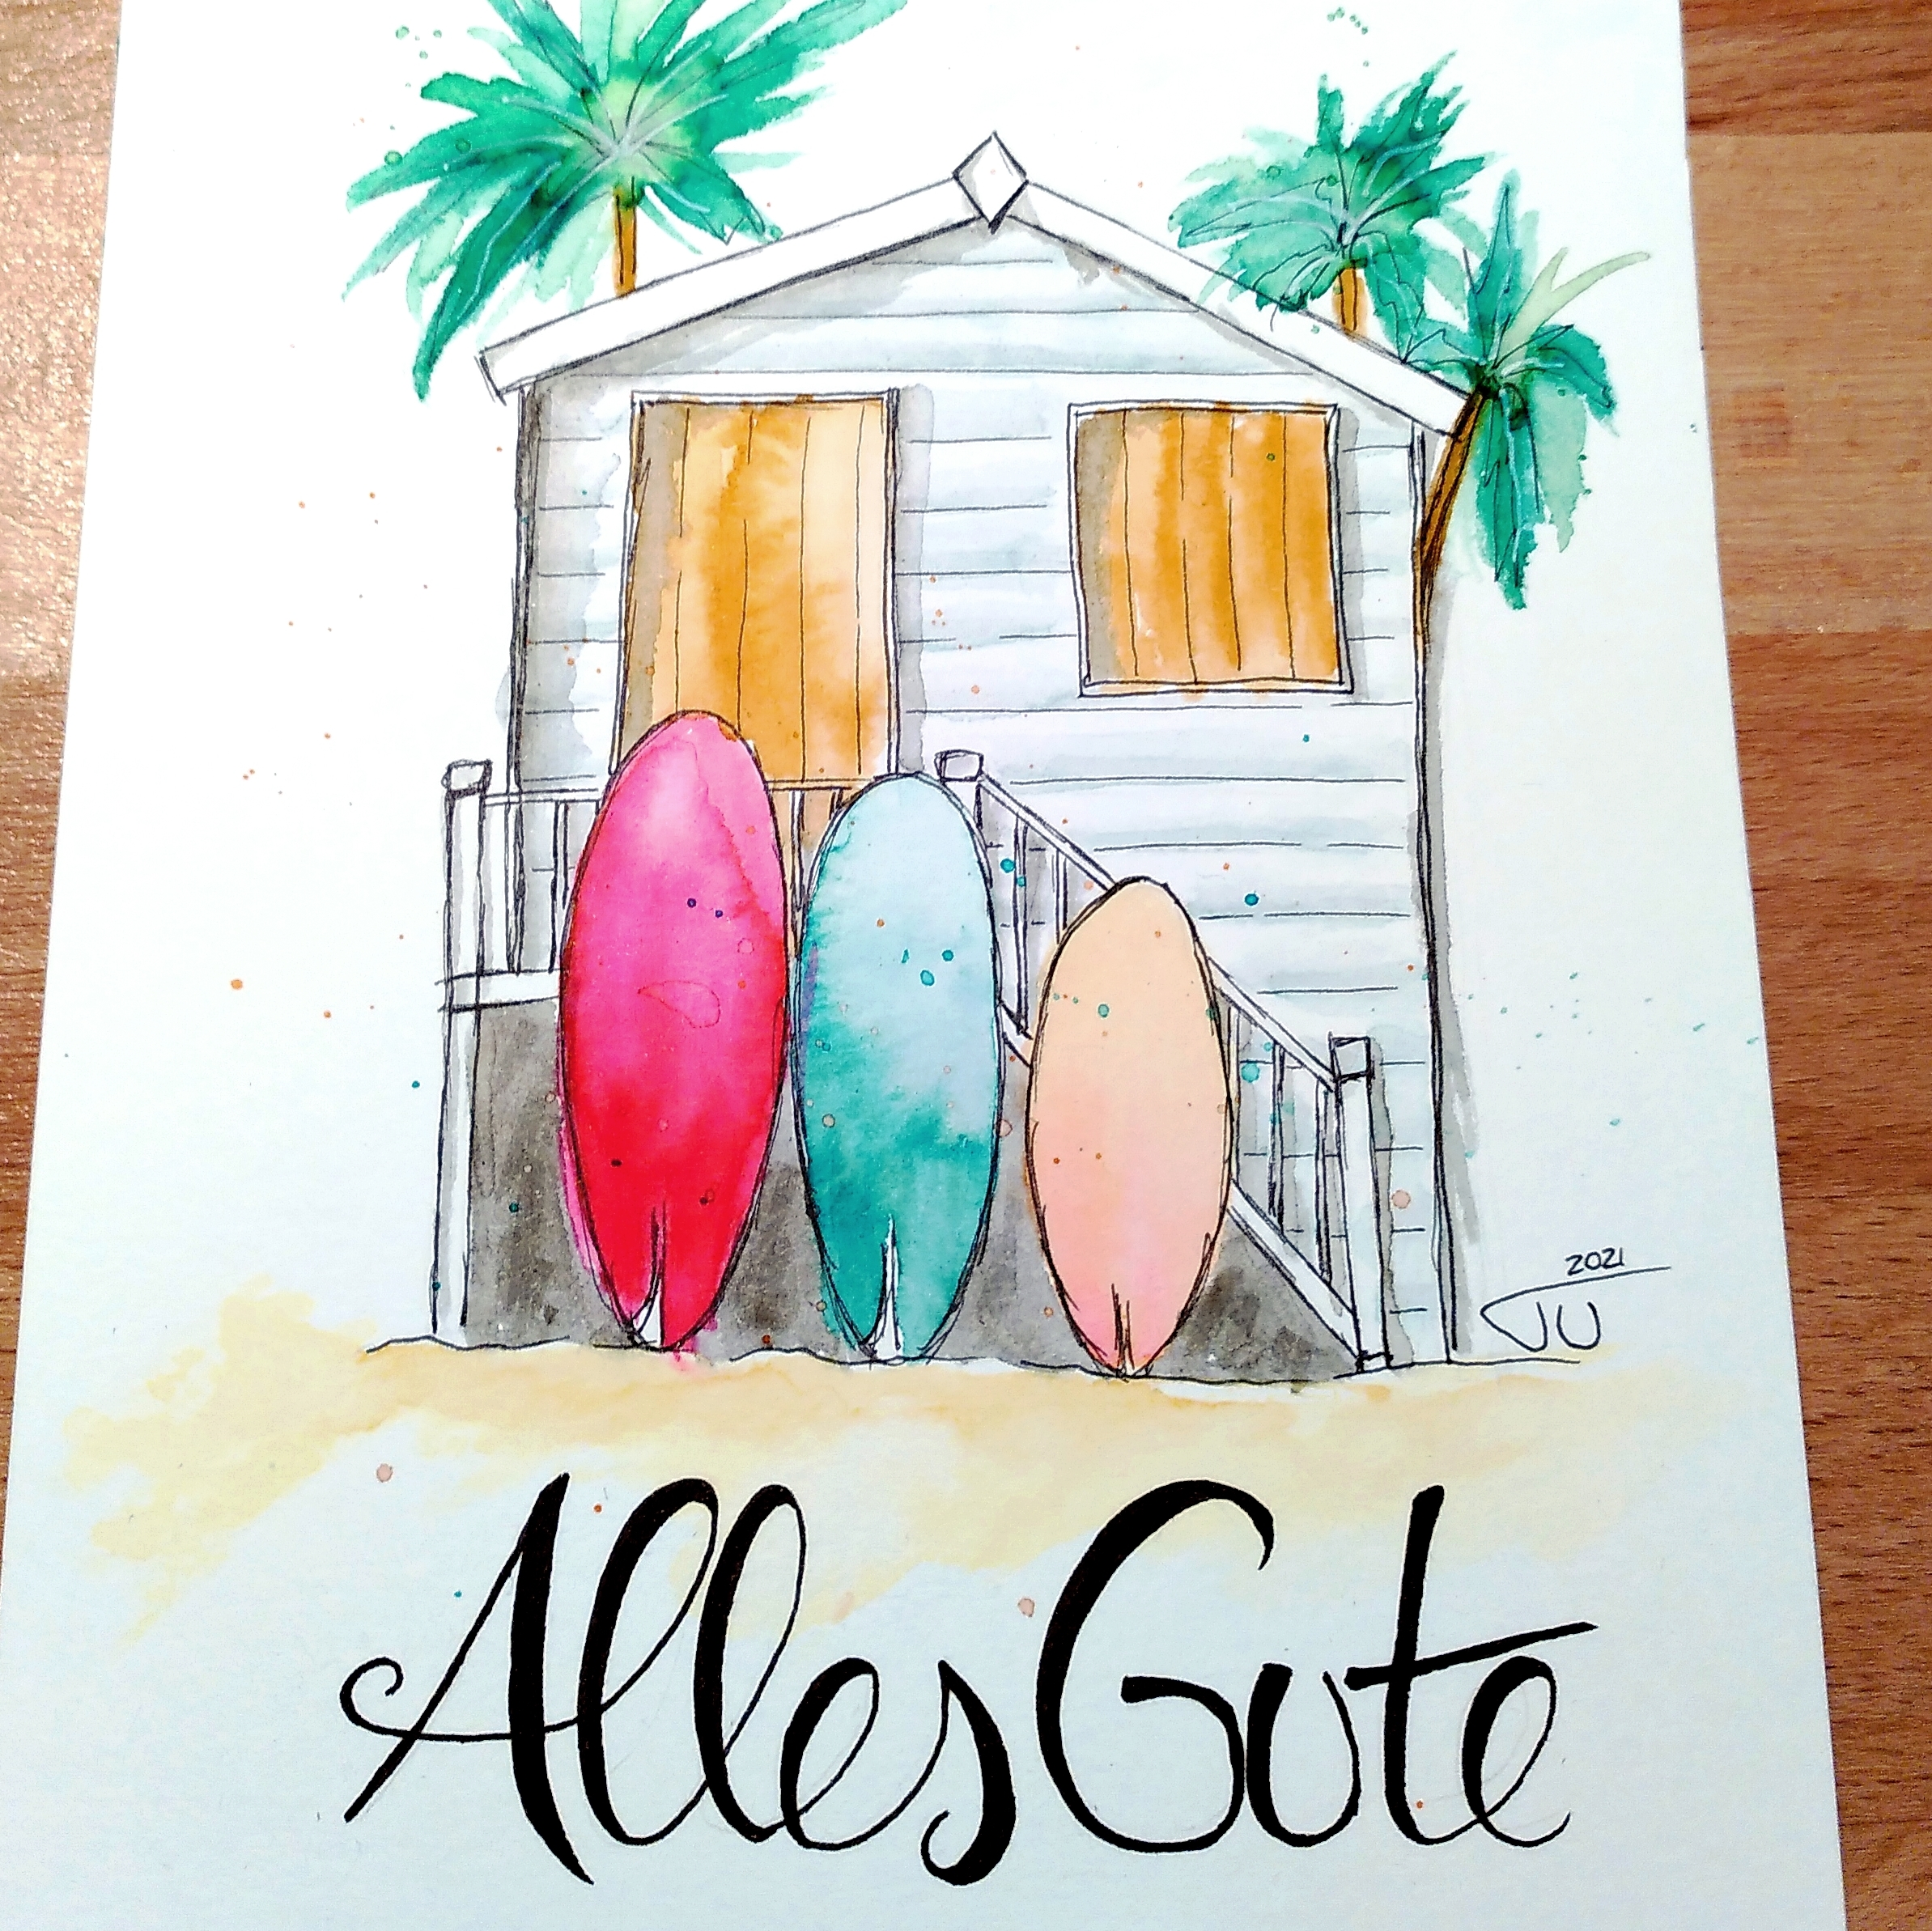 2021
JU
Alles Gute